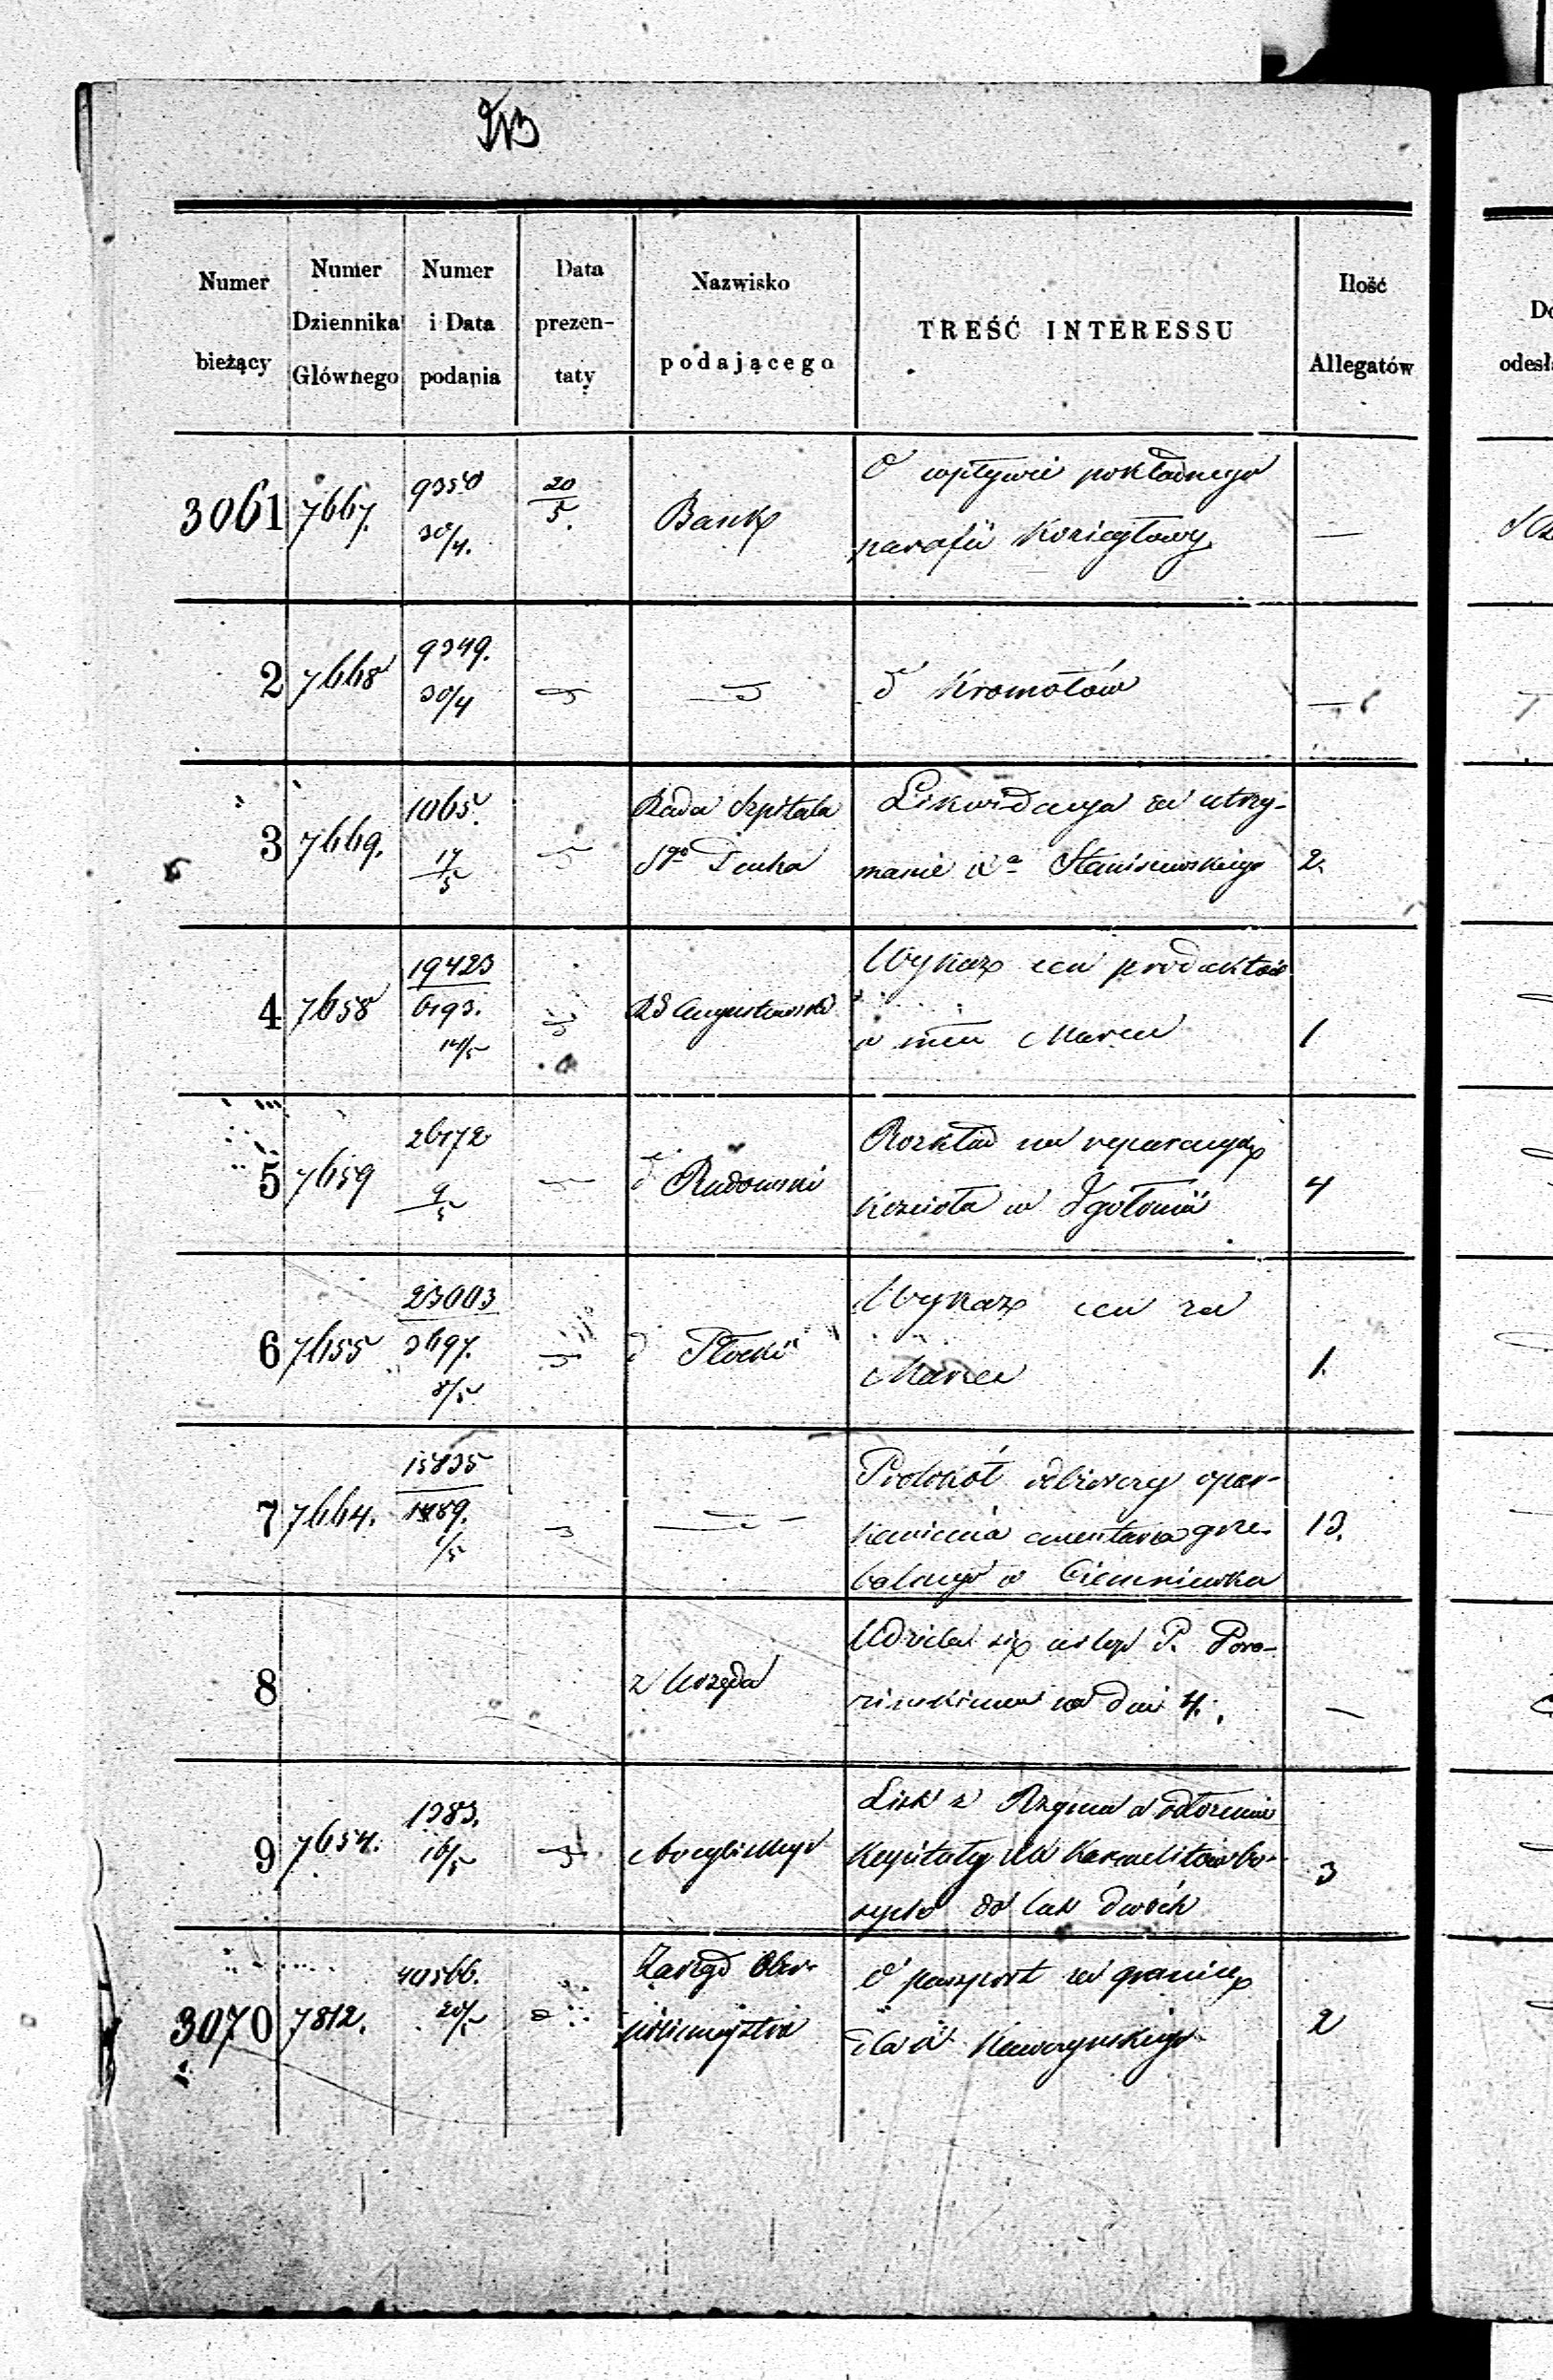 Numer bieżący
Numer Dziennika Głównego
Numer i Data podania
Data prezentaty
Nazwisko podającego
TREŚĆ INTERESSU
Ilość Allegatów
3061 7667. 9350 30/4. 20/5. Bank
O wpływie pokładnego
parafii Koziegłowy —
2 7668 9349. 30/4
dº Kromołów —
3 7669. 1065. 17/5
Rada Szpitala
Sgo Ducha
Likwidacya za utrzy-
manie Xa Staniszewskiego 2.
4 7658 19423 6193. 14/5
RG Augustowski
Wykaz cen produktów
w mcu Marcu 1
5 7659 26172 9/5
dº Radomski
Rozkład na reparacyą
kościoła w Igołomii 4
6 7655 23003 3697. 8/5
d Płocki
Wykaz cen za
Marzec 1.
7 7664. 15835 1/5
Protokół odbiorczy opar-
kanienia cmentarza grze-
balnego w Ciemniewku 13.
8
z Urzędu
Udziela się urlop P.
na dni 4. —
9 7654. 1383. 16/5
Arcybiskup
List z Rzymu o odłożenie
Kapituły XX Karmelitów bo-
sych do lat dwóch 3
3070 7812. 40566. 20/5
Zarząd Ober-
policmajstra
O paszport za granicę
dla X Kawczyńskiego 2